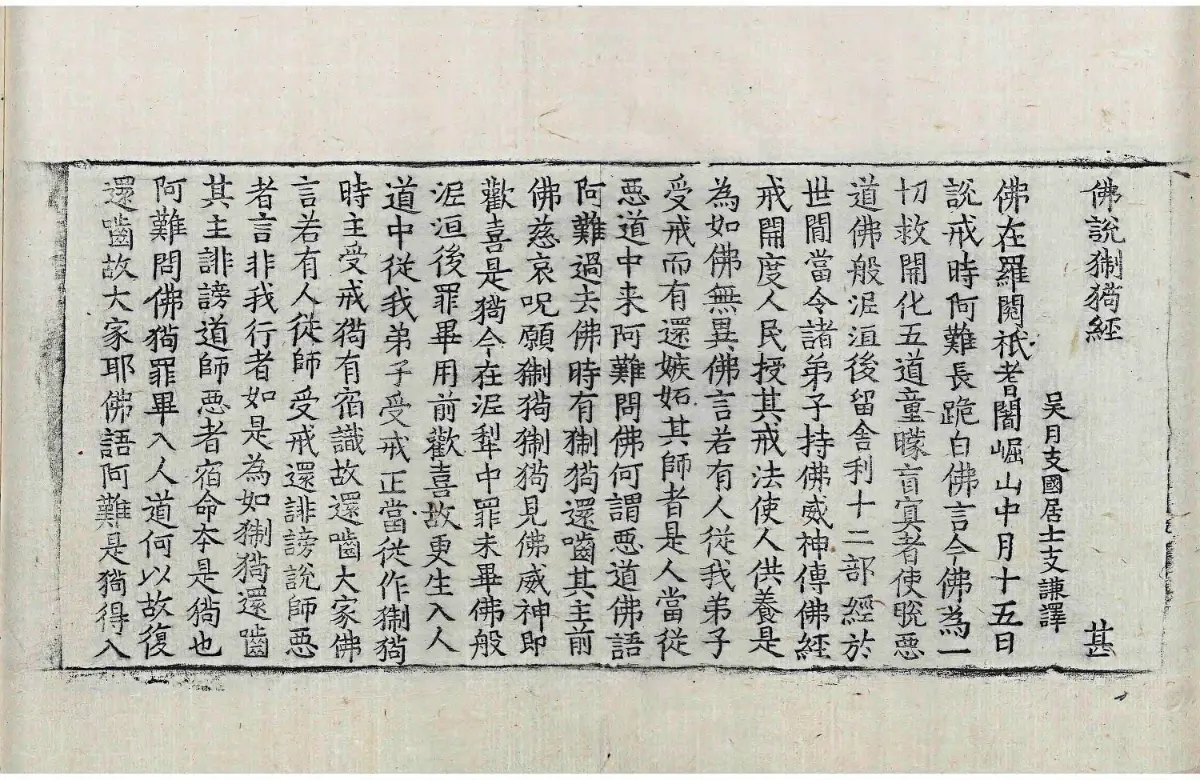 佛說猘狗經
甚
吳月支國居士支謙譯
佛在羅閱祇耆闍崛山中月十五日
說戒時阿難長跪白佛言今佛為一
切救開化五道童矇盲冥者使脫惡
道佛般泥洹後留舍利十二部經於
世間當令諸弟子持佛威神傳佛經
戒開度人民授其戒法使人供養是
為如佛無異佛言若有人從我弟子
受戒而有還嫉妬其師者是人當從
惡道中来阿難問佛何謂惡道佛語
阿難過去佛時有猘狗還嚙其主前
佛慈哀呪願猘狗猘狗見佛威神即
歡喜是狗今在泥犁中罪未畢佛般
泥洹後罪畢用前歡喜故更生入人
道中從我弟子受戒正當從作猘狗
時主受戒狗有宿識故還嚙大家佛
言若有人從師受戒還誹謗說師惡
者言非我行者如是為如猘狗還嚙
其主誹謗道師惡者宿命本是狗也
阿難問佛狗罪畢入人道何以故復
還嚙故大家耶佛語阿難是狗得入